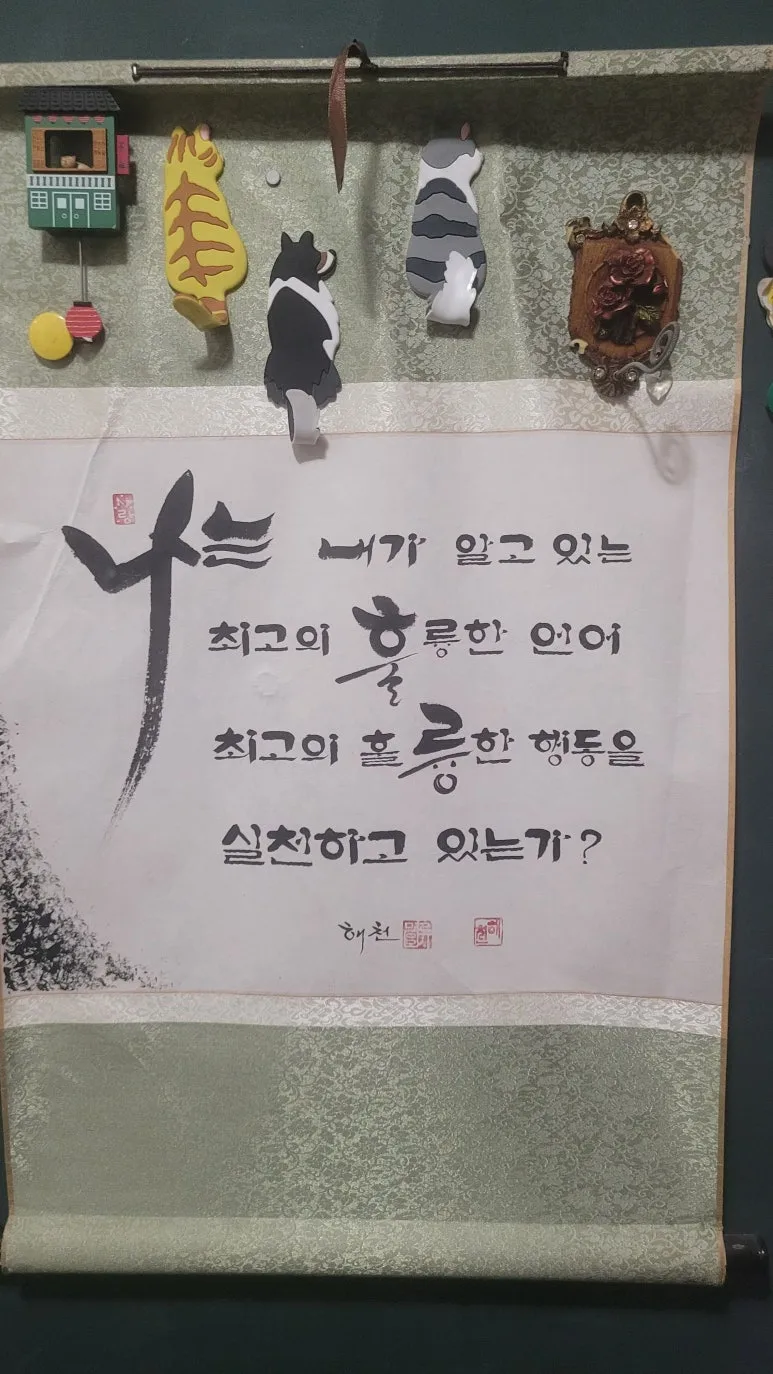 나는 내가 알고 있는
최고의 훌륭한 언어
최고의 훌륭한 행동을
실천하고 있는가?
해천